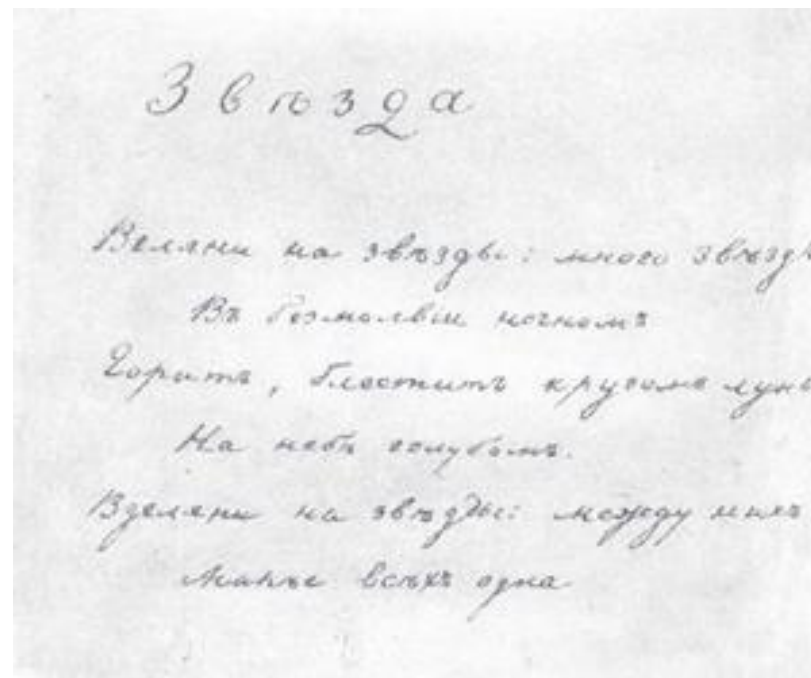 Звѣзда
Взгляни на звѣзды: много звѣздъ
Въ безмолвiи ночномъ
Горитъ, блеститъ кругомъ луны
На небѣ голубомъ.
Взгляни на звѣзды: между нихъ
Милѣе всѣхъ одна